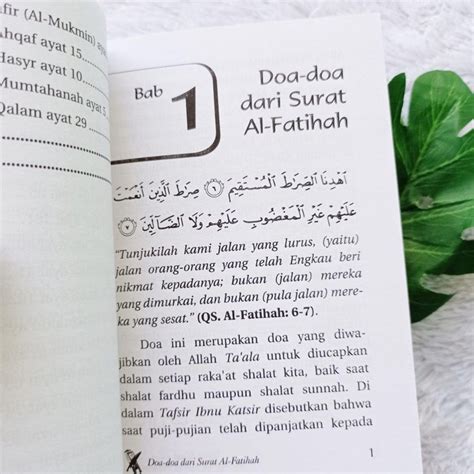 fir (Al-Mukmin) ay
hqaf ayat 15
asyr ayat 10
Mumtahanah ayat 5
Qalam ayat 29
Bab 1
Doa-doa
dari Surat
Al-Fatihah
ٱهْدِنَا ٱلصِّرَٰطَ ٱلْمُسْتَقِيمَ ۝٦ صِرَٰطَ ٱلَّذِينَ أَنْعَمْتَ
عَلَيْهِمْ غَيْرِ ٱلْمَغْضُوبِ عَلَيْهِمْ وَلَا ٱلضَّآلِّينَ ۝٧
"Tunjukilah kami jalan yang lurus, (yaitu)
jalan orang-orang yang telah Engkau beri
nikmat kepadanya; bukan (jalan) mereka
yang dimurkai, dan bukan (pula jalan) mere-
ka yang sesat." (QS. Al-Fatihah: 6-7).
Doa ini merupakan doa yang diwa-
jibkan oleh Allah Ta'ala untuk diucapkan
dalam setiap raka'at shalat kita, baik saat
shalat fardhu maupun shalat sunnah. Di
dalam Tafsir Ibnu Katsir disebutkan bahwa
saat puji-pujian telah dipanjatkan kepada
Doa-doa dari Surat Al-Fatihah 1